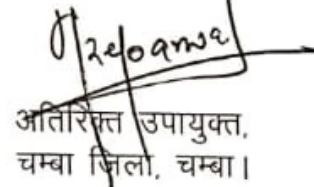 अतिरिक्त उपायुक्त,
चम्बा जिला, चम्बा।